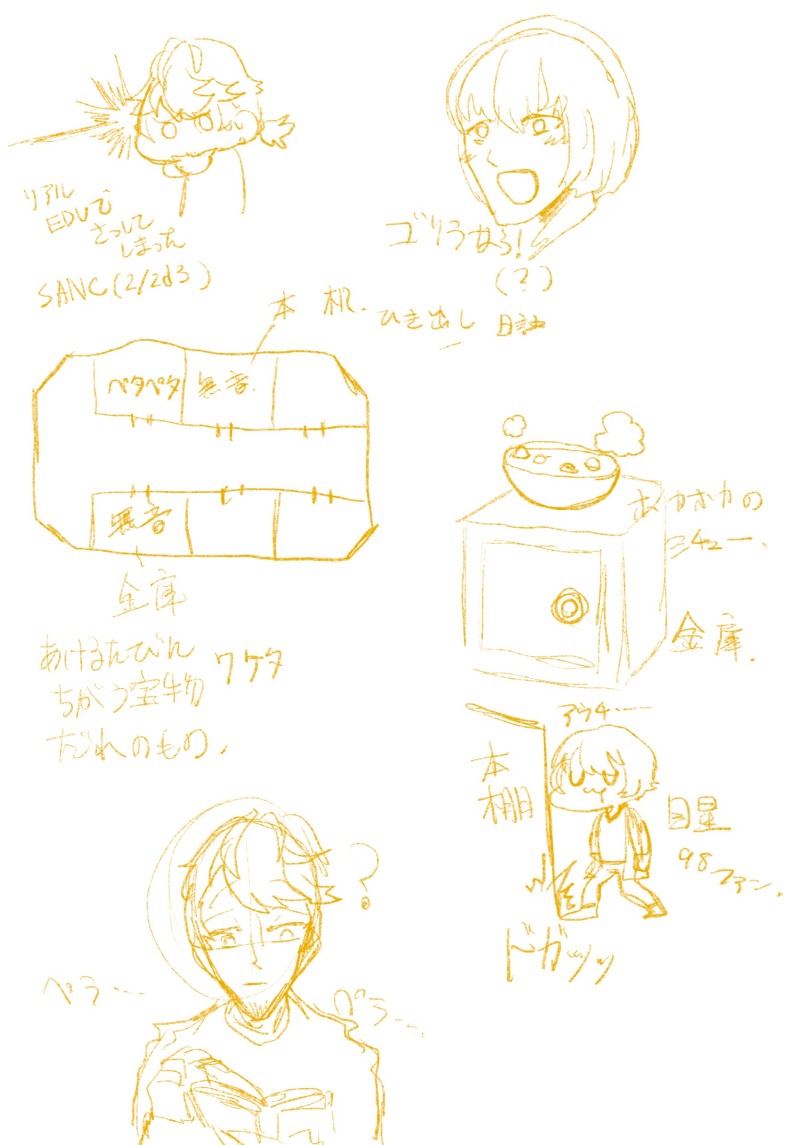 リアル
EDUで
さっして
しまった
SANC(2/2d3)
ゴリラなら!
(?)
本 机.
ひき出し 日記
ペタペタ 無音.
無音
金庫
ホカホカの
シチュー.
金庫.
あけるたびに
ちがう宝物 ワケタ
だれのもの.
アウチ…
本
棚
目星
98ファン.
ドガッッ
?
ペラ…
ペラ…